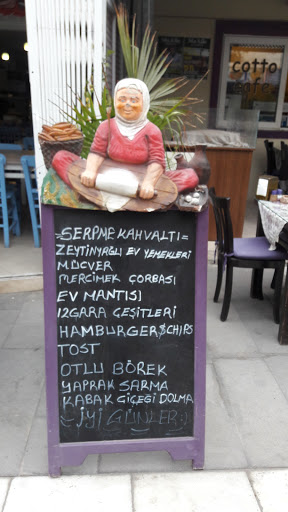 cotto
cafe
=SERPME KAHVALTI=
ZEYTİNYAĞLI EV YEMEKLERİ
MÜCVER
MERCİMEK ÇORBASI
EV MANTISI
IZGARA ÇEŞİTLERİ
HAMBURGER&CHIPS
TOST
OTLU BÖREK
YAPRAK SARMA
KABAK ÇİÇEĞİ DOLMA
İYİ GÜNLER